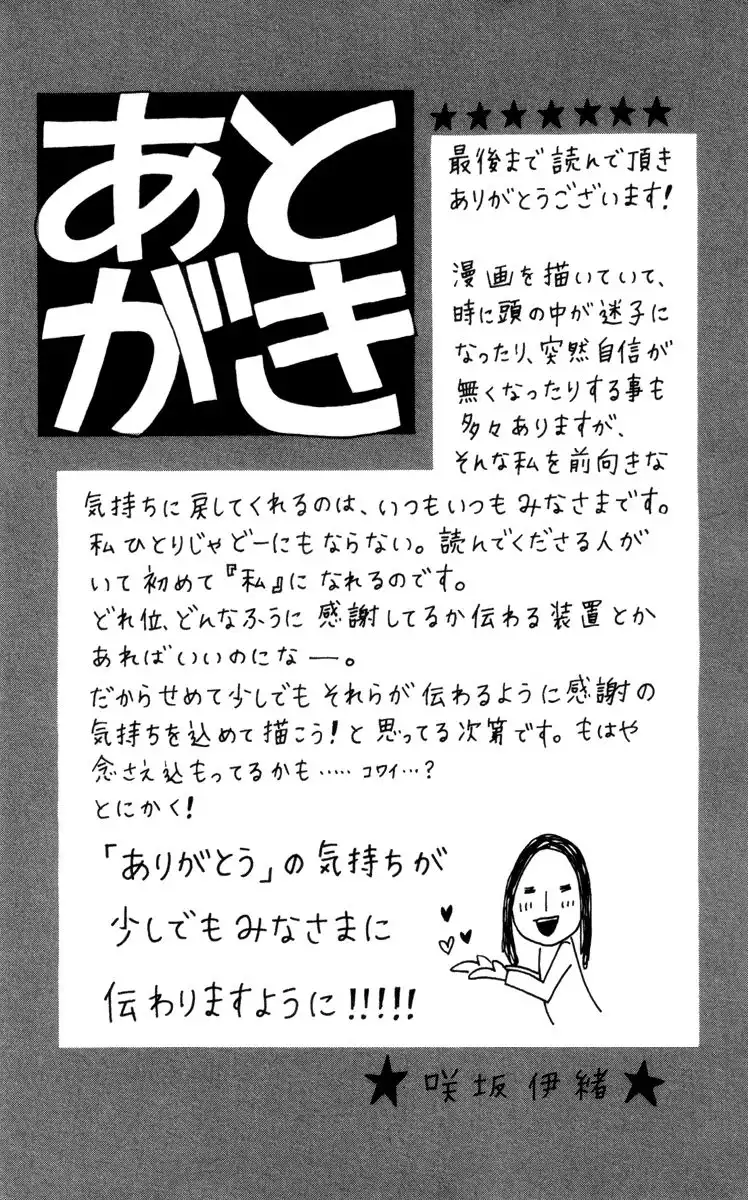 あと
がき
最後まで読んで頂き
ありがとうございます!
漫画を描いていて、
時に頭の中が迷子に
なったり、突然自信が
無くなったりする事も
多々ありますが、
そんな私を前向きな
気持ちに戻してくれるのは、いつもいつもみなさまです。
私ひとりじゃどーにもならない。読んでくださる人が
いて初めて『私』になれるのです。
どれ位、どんなふうに感謝してるか伝わる装置とか
あればいいのになー。
だからせめて少しでもそれらが伝わるように感謝の
気持ちを込めて描こう!と思ってる次第です。もはや
念さえ込もってるかも……コワイ…?
とにかく!
「ありがとう」の気持ちが
少しでもみなさまに
伝わりますように!!!!!
★咲坂伊緒★